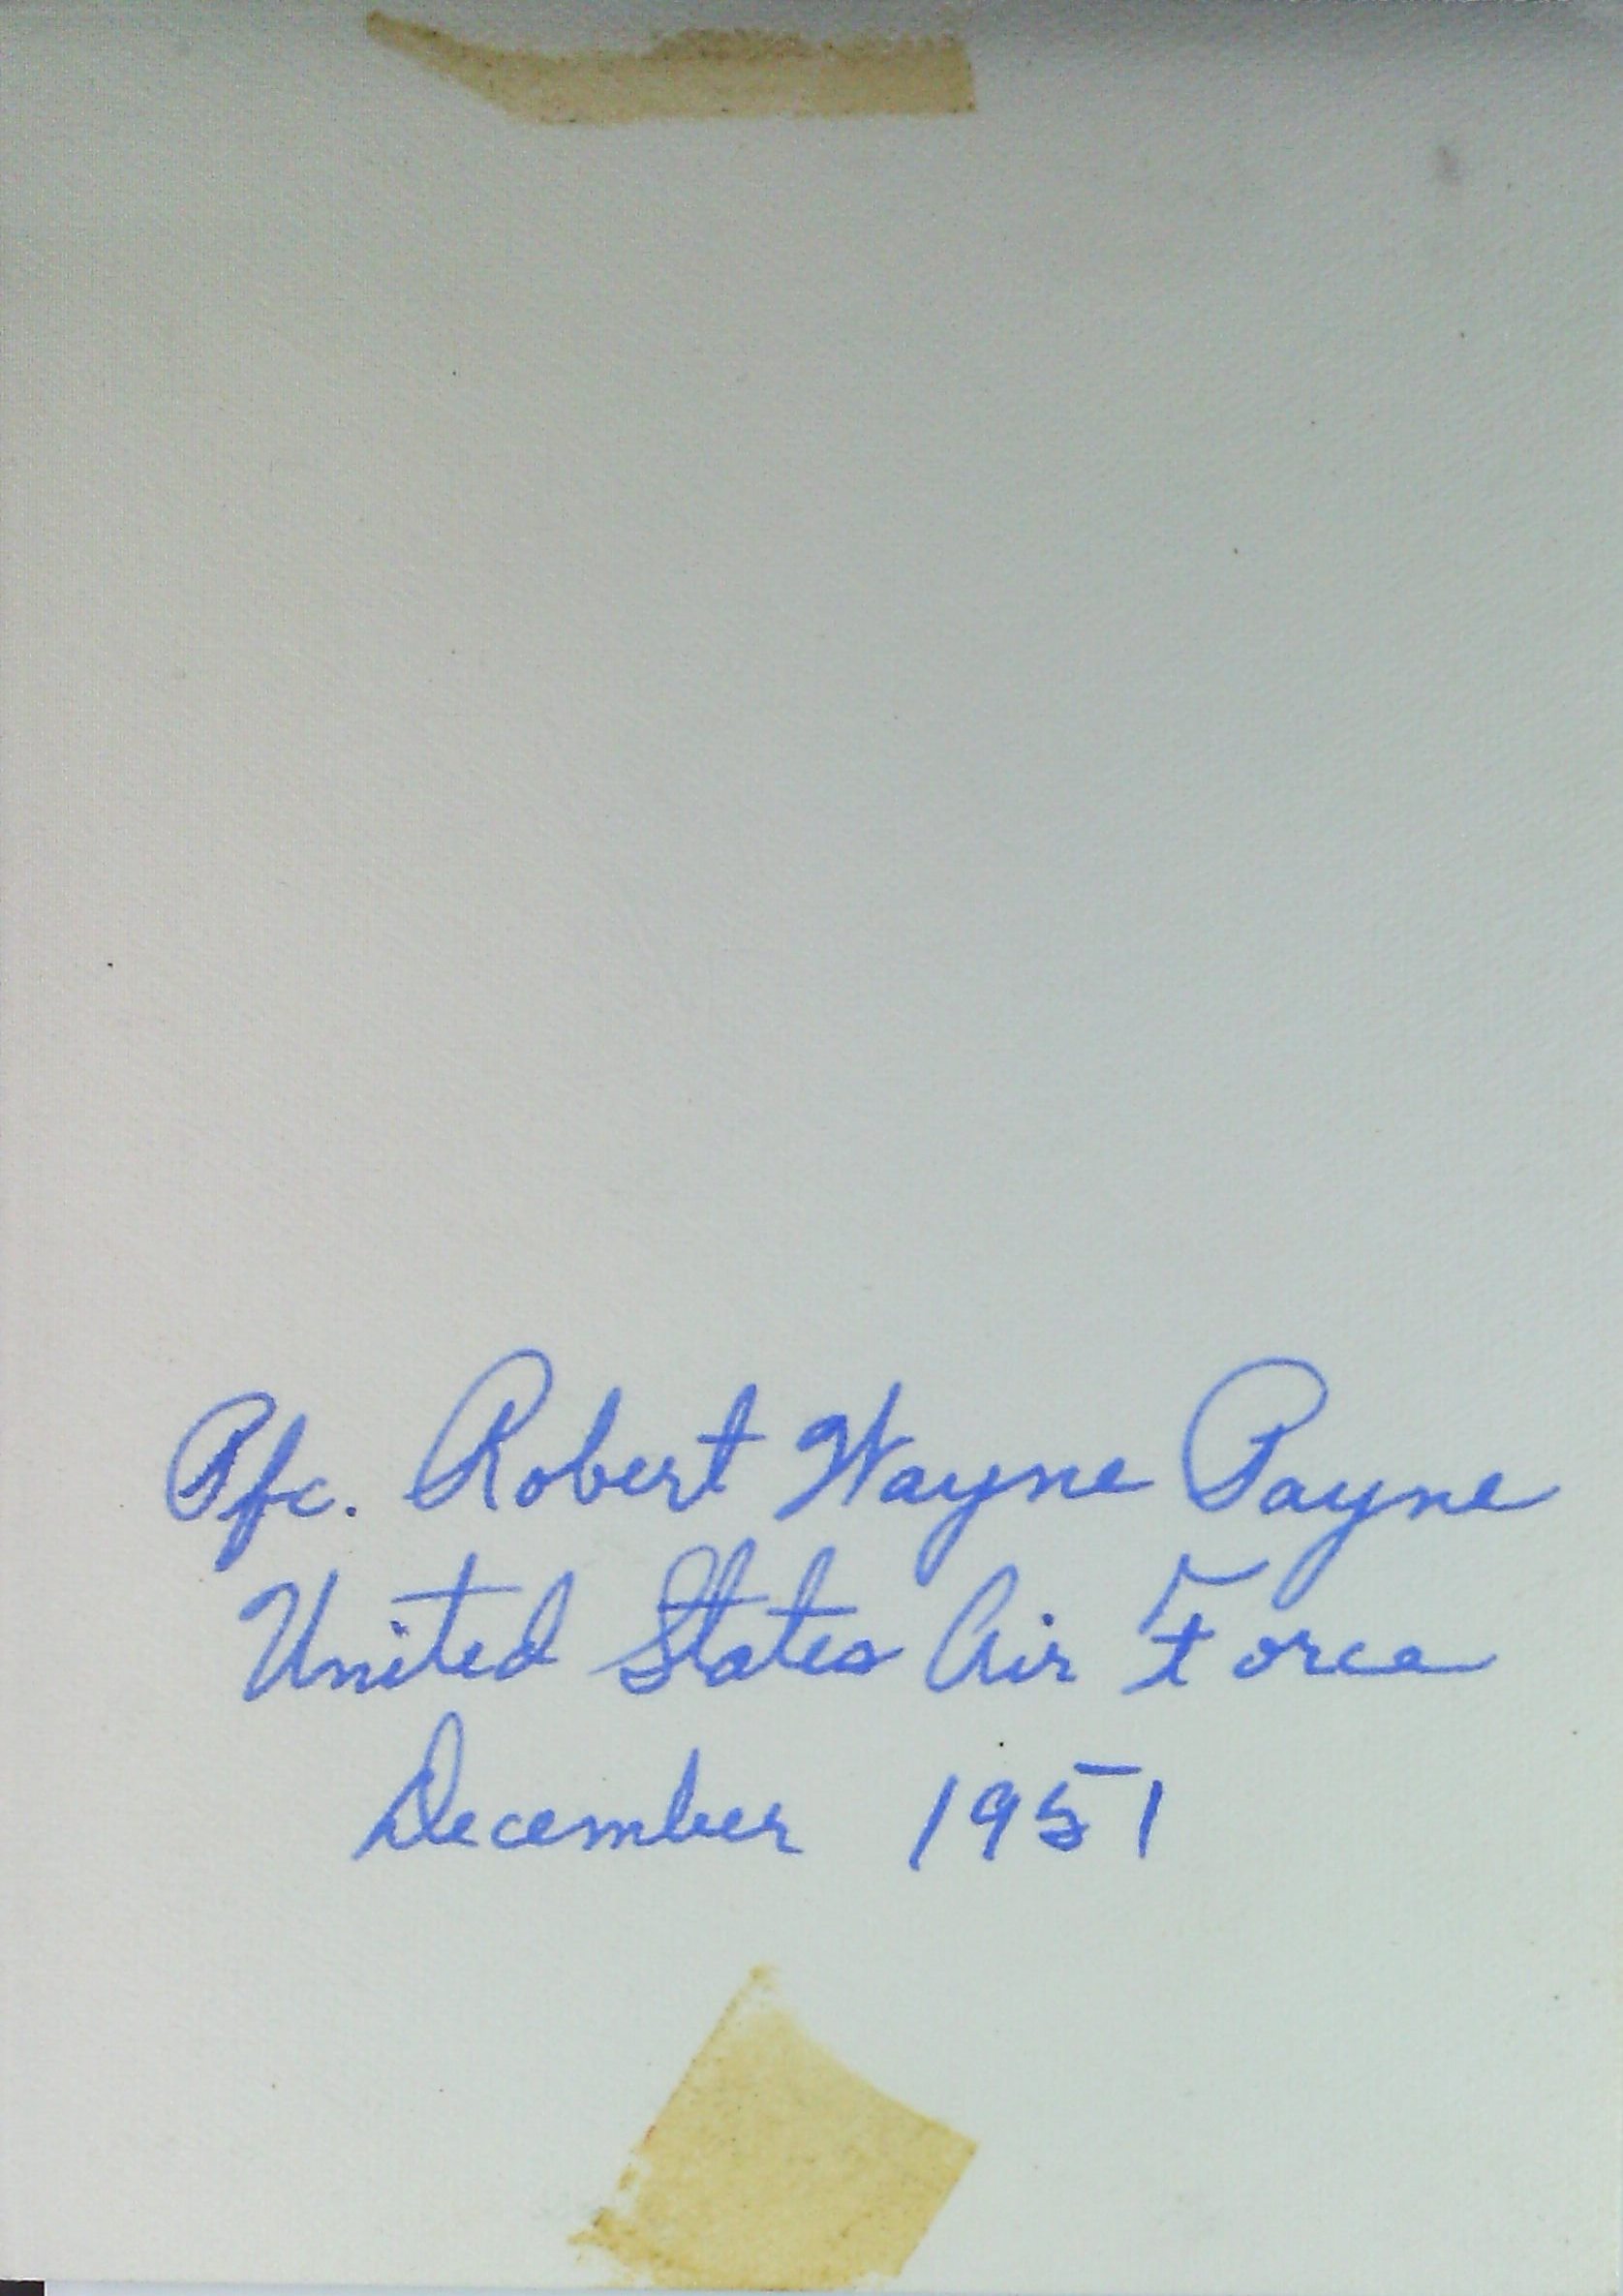 Pfc. Robert Wayne Payne
United States Air Force
December 1951